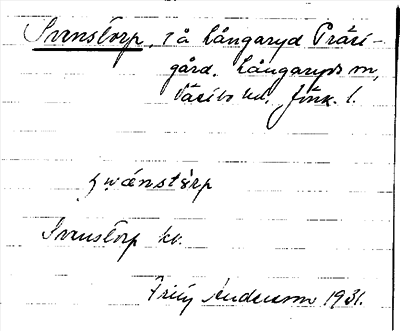 Svenstorp, r å Långaryd Präst-
gård. Långaryds sn,
Västbo hd, Jönk. l.
svǽnstȯrp
Svenstorp kv.
Andersson 1931.